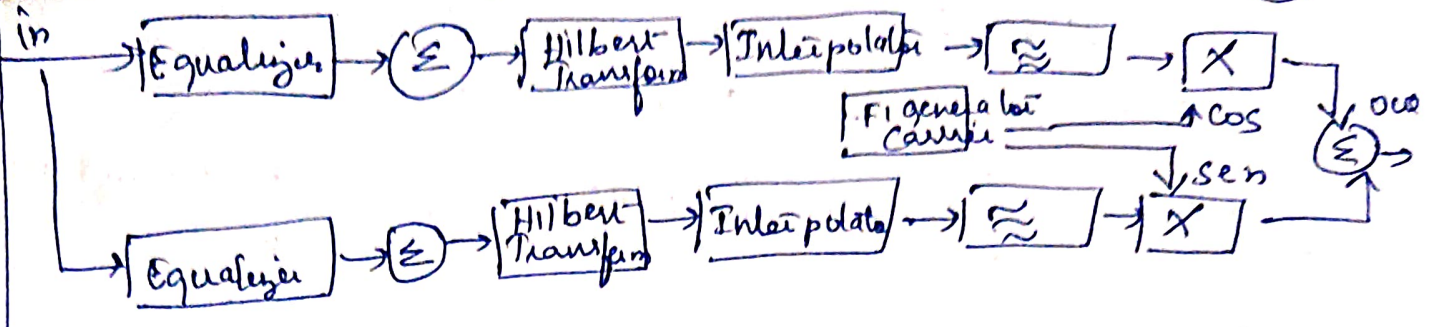 in
Equalizer
Σ
Hilbert
Transform
Interpolator
≈
X
FI generator
Carrier
COS
Σ
sen
Equalizer
Σ
Hilbert
Transform
Interpolator
≈
X